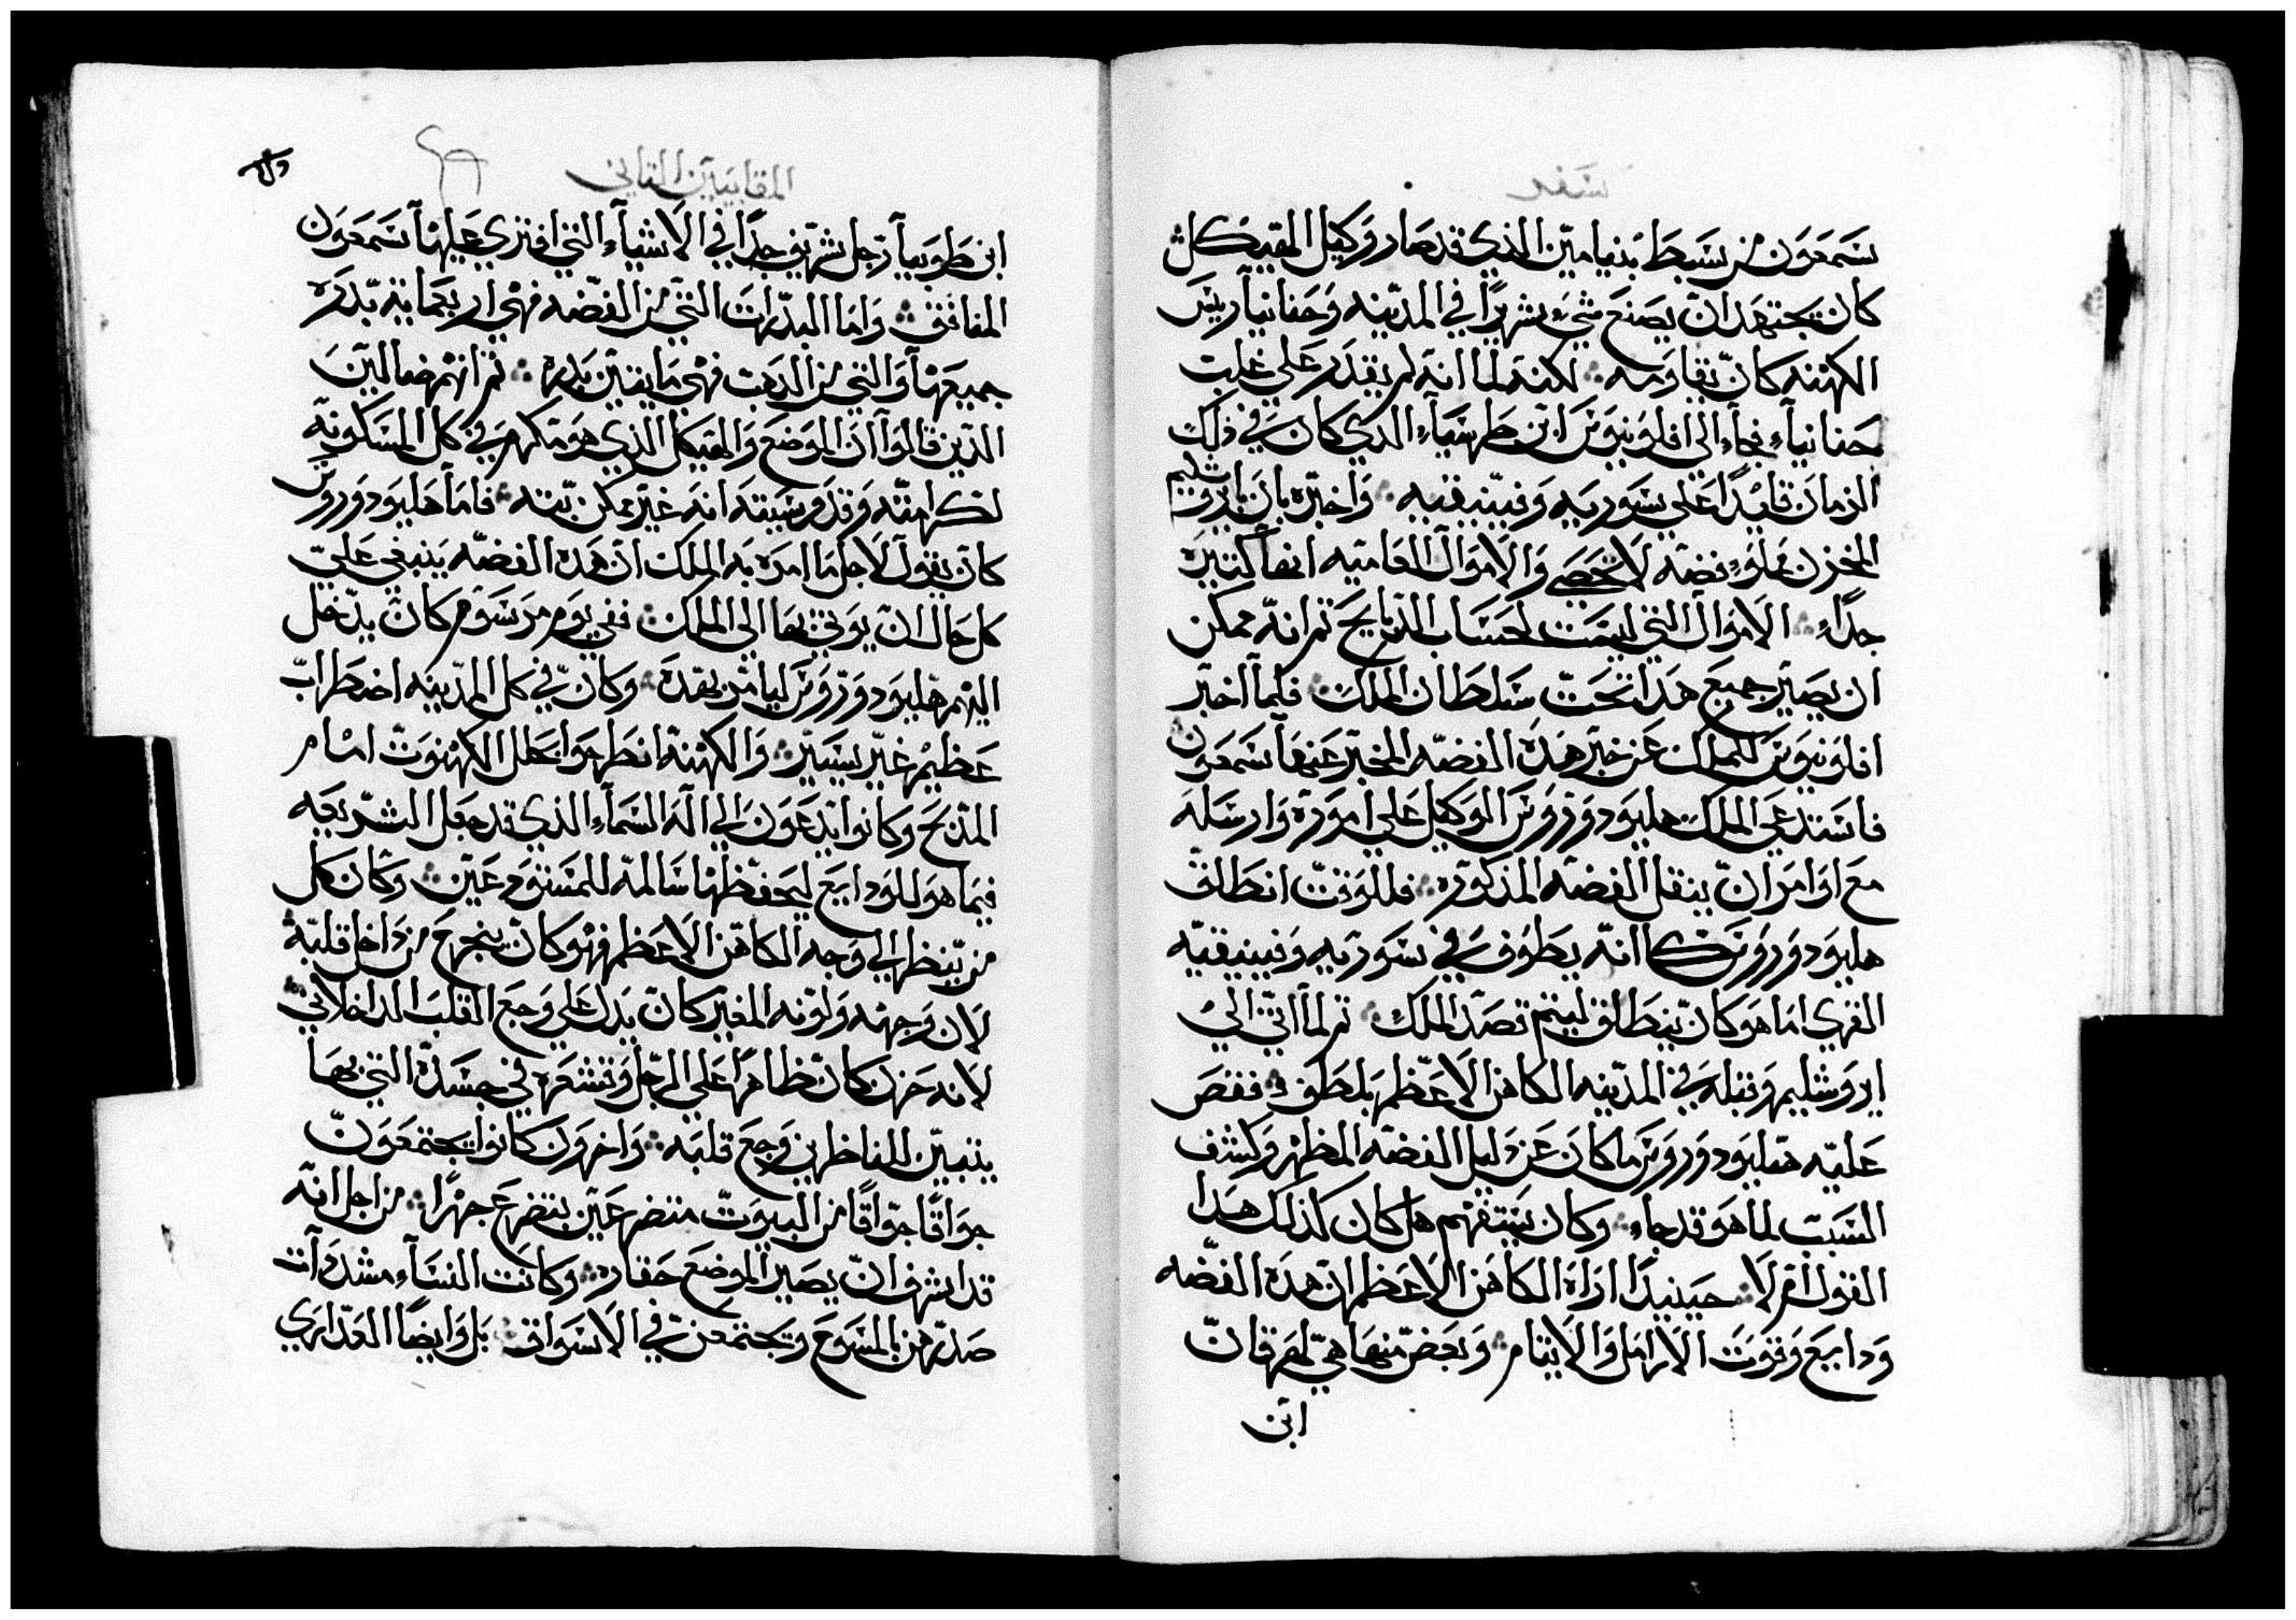 سفر
سمعون من سبط بنيامين الذي قد صار وكيل الهيكل
كان يجتهد ان يصنع شيء شريرًا في المدينه وحنانيا ريس
الكهنه كان يقاومه ∴ لكنه لما انه لم يقدر على غلبت
حنانياء فجاء الى افلونيوس ابن طرسياء الدي كان في ذلك
الزمان قايدًا على سوريه وفينيقيه ∴ واخبره بان اورشليم
المخزن مملوء فضه لا تحصى والاموال العاميه انها كتيره
جداء ∴ الاموال التي ليست لحساب الدبايح تم انه ممكن
ان يصير جميع هدا تحت سلطان الملك ∴ فلما اخبر
افلونيوس للملك عن خبر هده الفضه المخبر عنها سمعون
فاستدعى الملك هليودوروس الوكيل على اموره وارسله
مع اوامر ان ينقل الفضه المذكوره ∴ فللوقت انطلق
هليودوروس كما انه يطوف في سوريه وفينيقيه
القرى اما هو كان ينطلق ليتم قصد الملك ∴ تم لما اتى الى
ايروشليم وقبله في المدينه الكاهن الاعظم بلطف ∴ فقص
عليه هليودوروس ما كان عن دليل الفضه المظهر وكشف
السبب لما هو قد جاء ∴ وكان يستفهم هل كان كذلك هدا
القول ام لا ∴ حينيدا اراه الكاهن الاعظم ان هده الفضه
ودايع وقوت الارامل والايتام ∴ وبعض منها هي لهرقان
ابن
المقابيين التاني
ابن طوبيا رجل شريف جدًا في الاشياء التي افتري عليها سمعون
المنافق ∴ واما البدرات التي من الفضه فهي اربعمايه بدره
جميعها والتي من الدهب فهي مايتين بدره ∴ تم انهم ضالمين
الدين قالوا ان الموضع والهيكل الذي هو متكرم في كل المسكونه
لكرامته وقدوسيته انه غير ممكن بته ∴ فاما هليودوروس
كان يقول لاجل ما امره به الملك ان هده الفضه ينبغي على
كل حال ان يوتى بها الى الملك ∴ ففي يوم مرسوم كان يدخل
اليهم هليودوروس ليامر بهده ∴ وكان في كل المدينه اضطراب
عظيم غير يسير ∴ والكهنه انطرحوا بحلل الكهنوت امام
المدبح وكانوا يدعون الى اله السماء الذي قد جعل الشريعه
فيما هو للودايع ليحفظها سالمه للمستودعين ∴ وكان كل
من ينظر الى وجه الكاهن الاعظم فهو كان ينجرح من داخل قلبه
لان وجهه ولونه المغير كان يدل على وجع القلب الداخلاني ∴
لانه حزن كان ظاهرًا على الرجل وقشعره في جسده التي بها
يتبين للناظرين وجع قلبه ∴ واخرون كانوا يجتمعون
جواقًا جواقًا من البيوت متضرعين بتضرع جهرًا ∴ من اجل انه
قد اشرف ان يصير الموضع حقاره ∴ وكانت النساء مشددات
صدرهن بالمسوع ويجتمعن في الاسواق ∴ بل وايضًا العداري